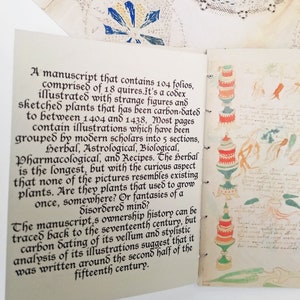 A manuscript that contains 104 folios,
comprised of 18 quires.It's a codex
illustrated with strange figures and
sketched plants that has been carbon-dated
to between 1404 and 1438. Most pages
contain illustrations which have been
grouped by modern scholars into 5 sections,
Herbal, Astrological, Biological,
Pharmacological, and Recipes. The Herbal
is the longest, but with the curious aspect
that none of the pictures resembles existing
plants. Are they plants that used to grow
once, somewhere? Or fantasies of a
disordered mind?
The manuscript,s ownership history can be
traced back to the seventeenth century, but
carbon dating of its vellum and stylistic
analysis of its illustrations suggest that it
was written around the second half of the
fifteenth century.